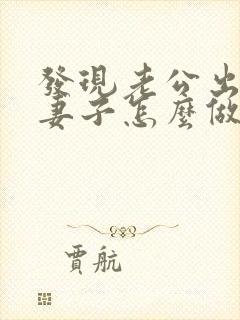 發現老公出
妻子怎麼做
賈航